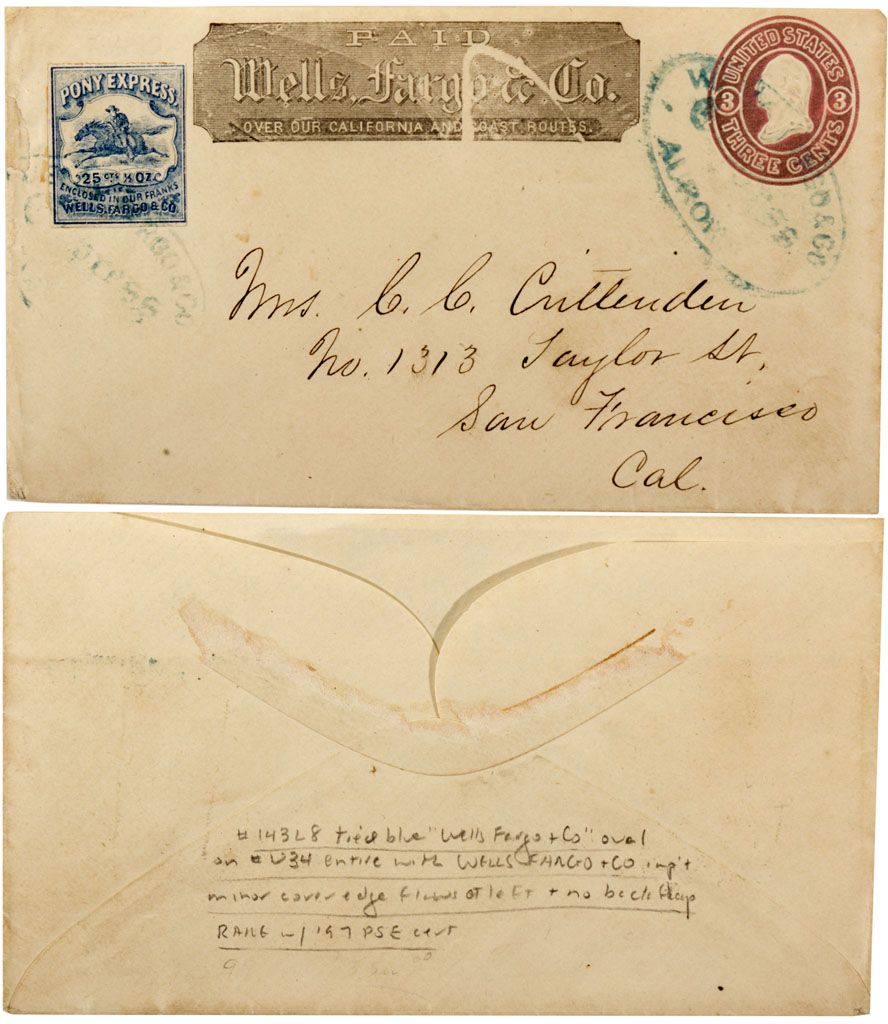 PAID
Wells, Fargo & Co.
OVER OUR CALIFORNIA AND COAST ROUTES.
PONY EXPRESS.
25 cts. ½ OZ.
ENCLOSED IN OUR FRANKS
WELLS, FARGO & CO.
UNITED STATES
3 3
THREE CENTS
GO & CO
RGO & CO
Mrs. C. C. Crittenden
No. 1313 Taylor St,
San Francisco
Cal.
#143L8 tied blue "Wells Fargo + Co" oval
on #U34 entire with WELLS FARGO + CO imp't
minor cover edge flaws at left + no backflap
RARE w/ '97 PSE cert